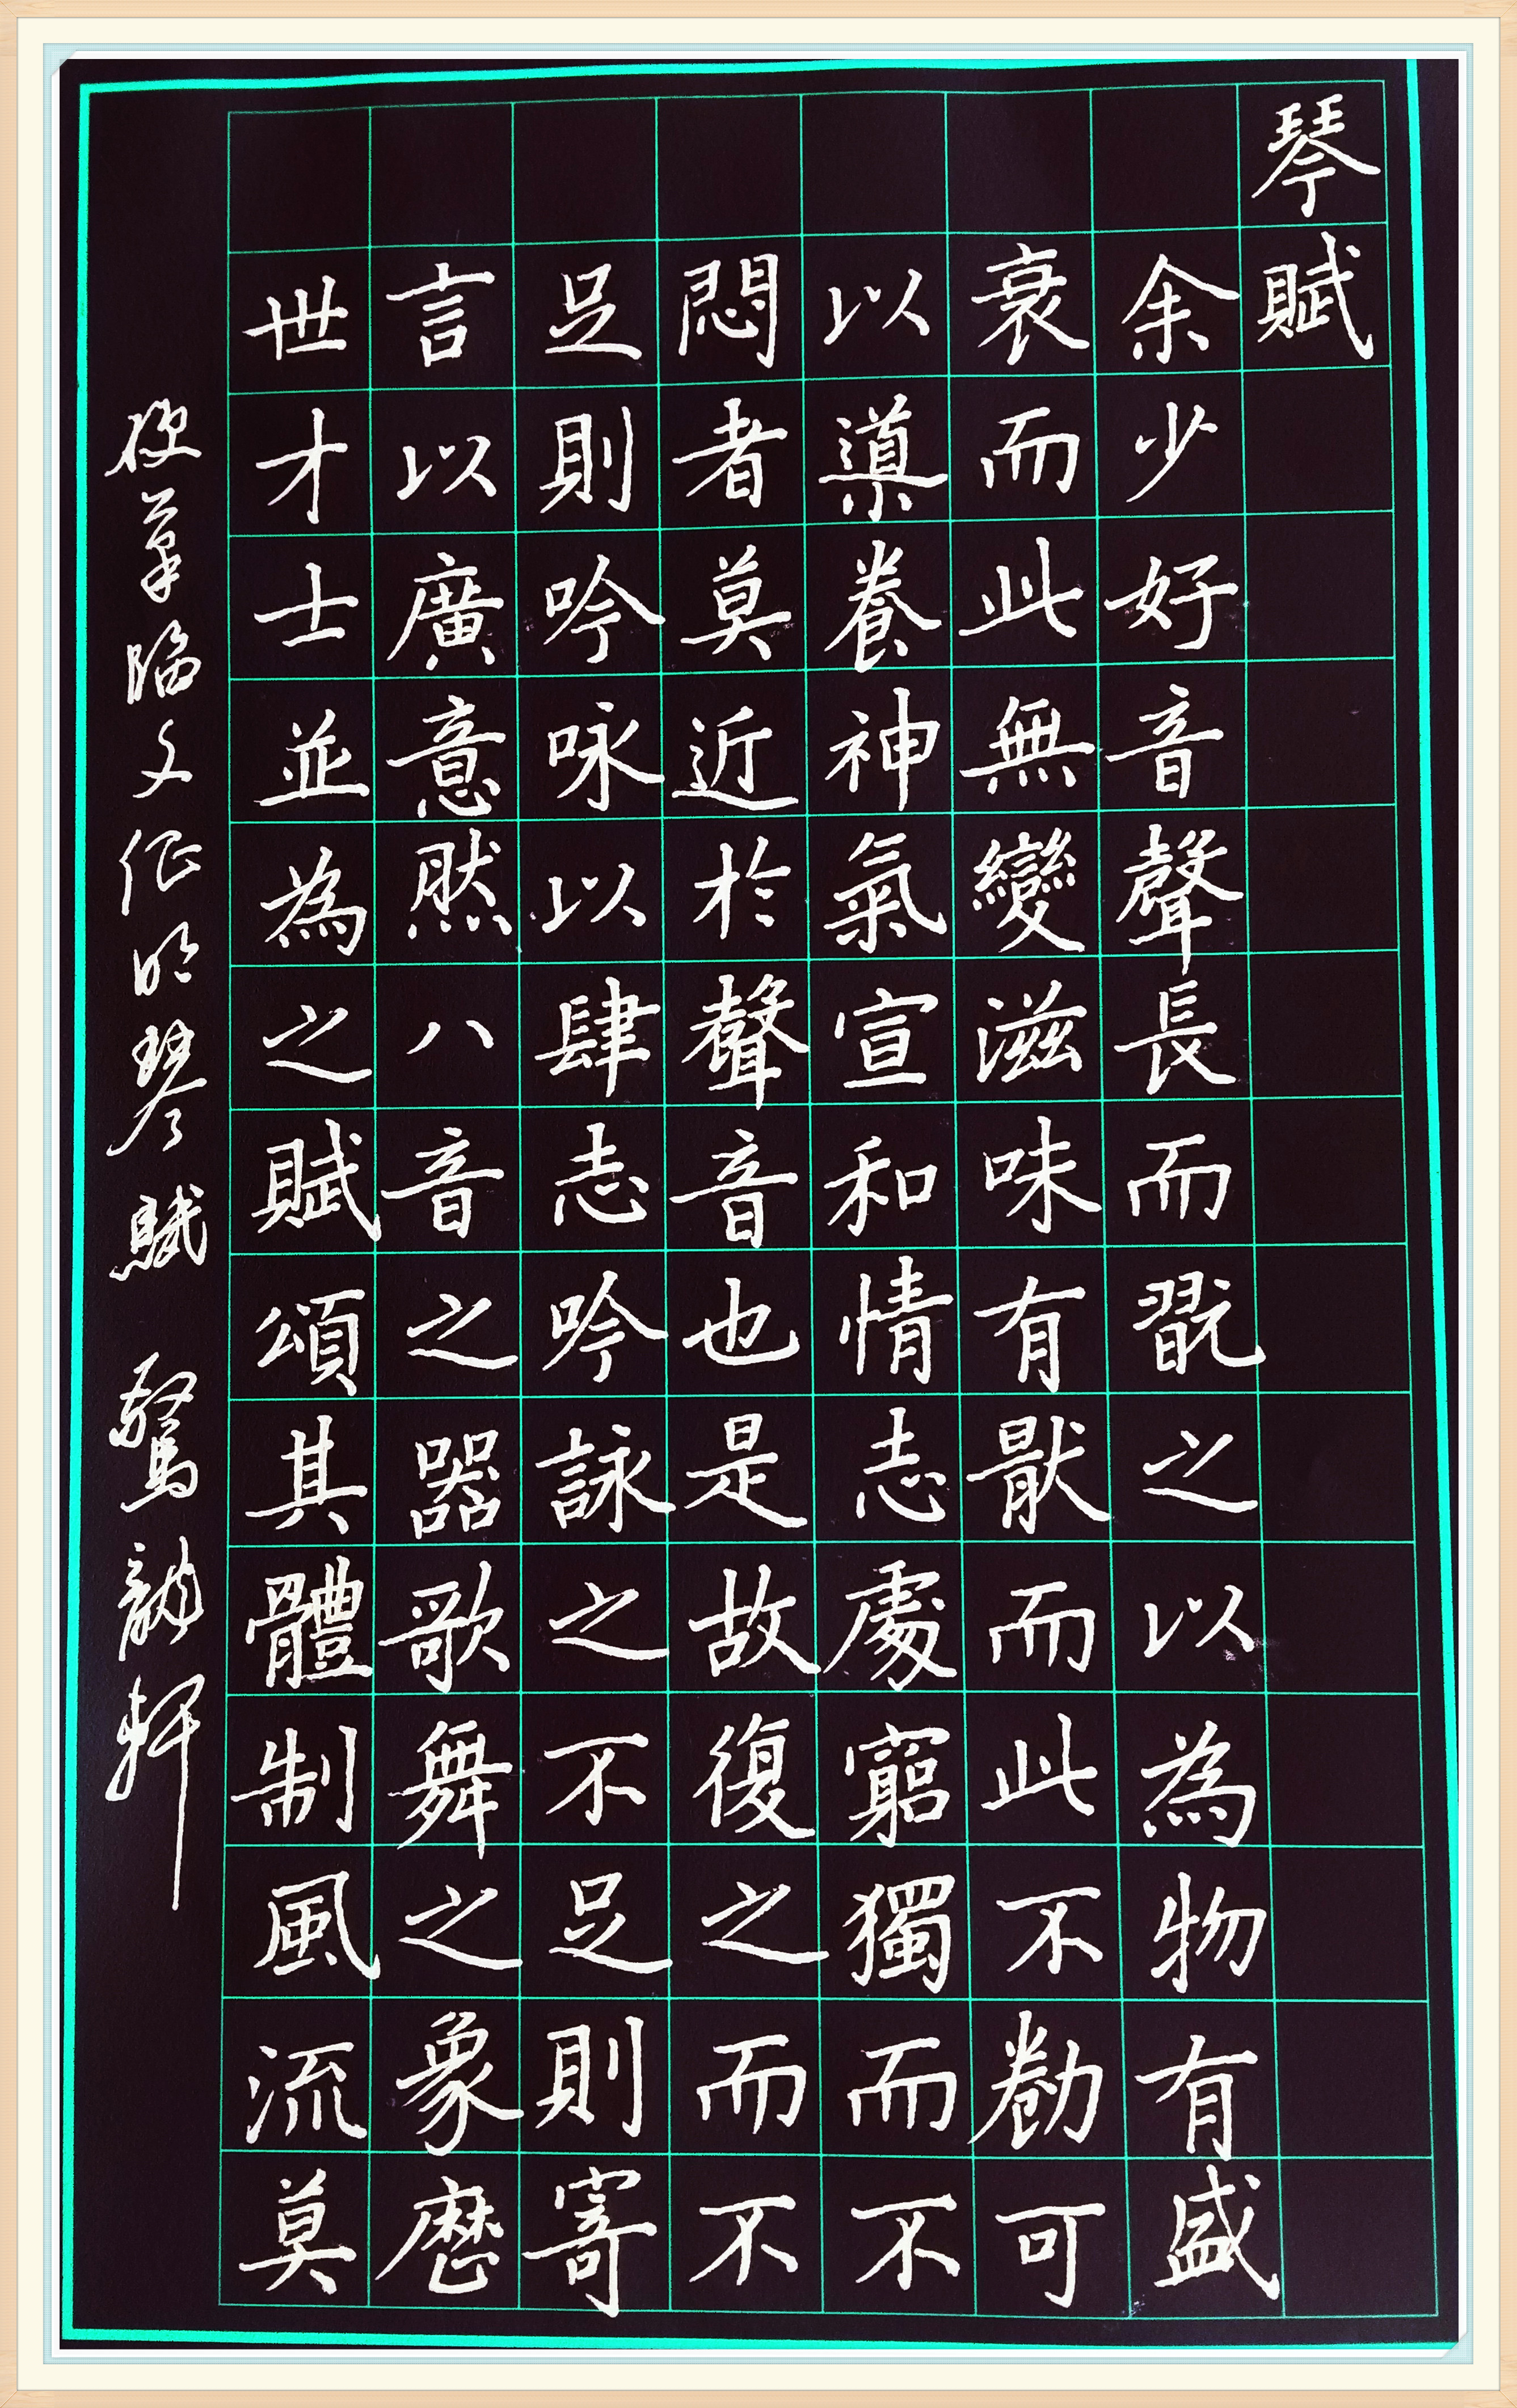 琴賦
余少好音聲長而翫之以為物有盛
衰而此無變滋味有猒而此不勌可
以導養神氣宣和情志處窮獨而不
悶者莫近於聲音也是故復之而不
足則吟咏以肆志吟詠之不足則寄
言以廣意然八音之器歌舞之象歷
世才士並為之賦頌其體制風流莫
硬筆臨文征明琴賦 驚龍軒